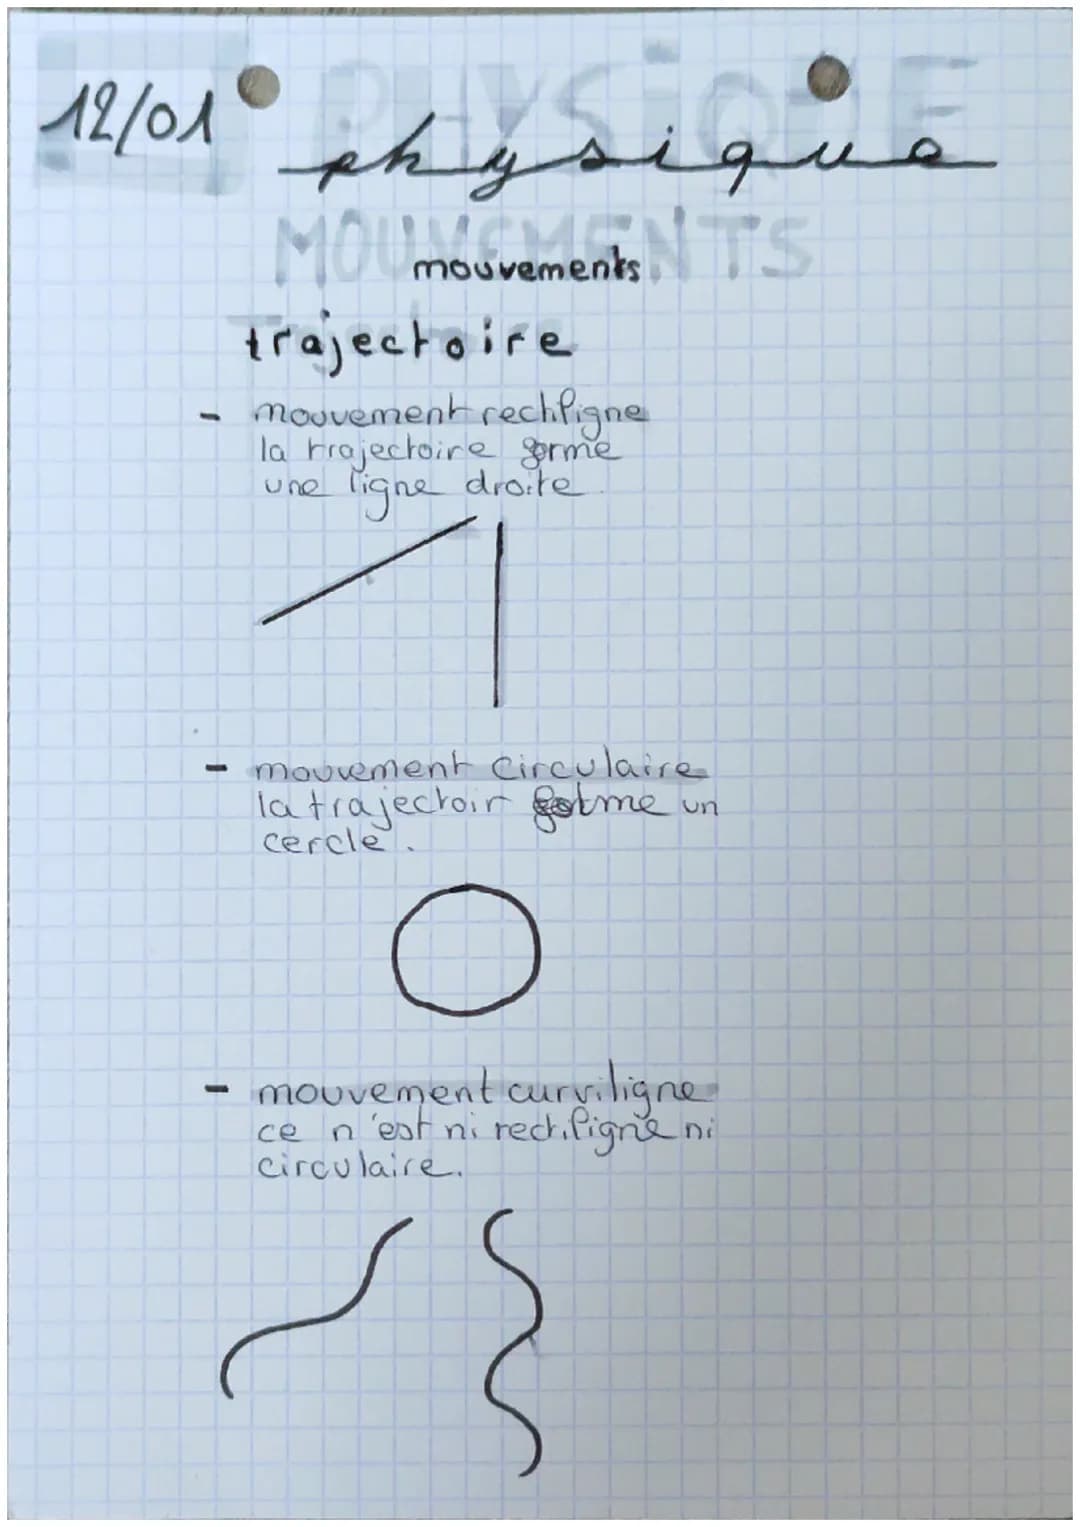 12/01
PHYSIQUE
physique
MOUVEMENTS
mouvements
trajectoire
- mouvement rectiligne
la trajectoire forme
une ligne droite.
- mouvement circulaire
la trajectoir forme un
cercle.
- mouvement curviligne
ce n'est ni rectiligne ni
circulaire.